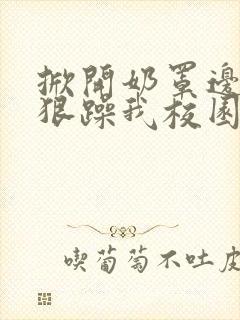 掀開奶罩邊
狠躁我校園
喫葡萄不吐皮